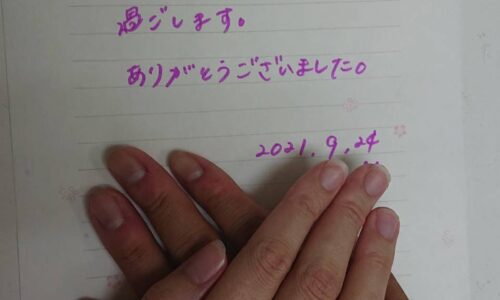 過ごします。
ありがとうございました。
2021.9.24